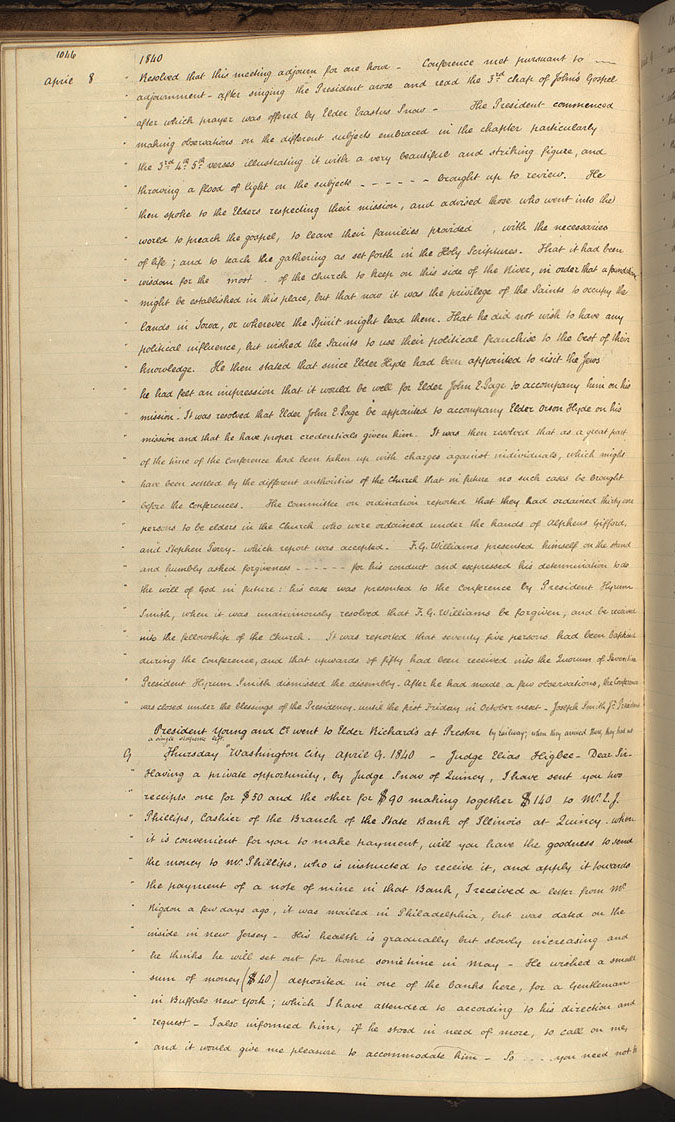 1046
1840
April 8 " Resolved that this meeting adjourn for one hour - Conference met pursuant to —
" adjournment - after singing the President arose and read the 3rd chap of John's Gospel
" after which prayer was offered by Elder Erastus Snow - The President commenced
" making observations on the different subjects embraced in the chapter particularly
" the 3rd 4th 5th verses illustrating it with a very beautiful and striking figure, and
" throwing a flood of light on the subjects - - - - - - brought up to review. He
" then spoke to the Elders respecting their mission, and advised those who went into the
" world to preach the gospel, to leave their families provided , with the necessaries
" of life; and to teach the gathering as set forth in the Holy Scriptures. That it had been
" wisdom for the most . of the Church to keep on this side of the River, in order that a foundation
" might be established in this place, but that now it was the privilege of the Saints to occupy the
" Lands in Iowa, or wherever the Spirit might lead them. That he did not wish to have any
" political influence, but wished the Saints to use their political franchise to the best of their
" knowledge. He then stated that since Elder Hyde had been appointed to visit the Jews
" he had felt an impression that it would be well for Elder John E. Page to accompany him on his
" mission - It was resolved that Elder John E Page be appointed to accompany Elder Orson Hyde on his
" mission and that he have proper credentials given him. It was then resolved that as a great part
" of the time of the Conference had been taken up with charges against individuals, which might
" have been settled by the different authorities of the Church that in future no such cases be brought
" before the conferences. The committee on ordination reported that they had ordained thirty one
" persons to be elders in the Church who were ordained under the hands of Alpheus Gifford,
" and Stephen Perry - which report was accepted. F. G. Williams presented himself on the stand
" and humbly asked forgiveness - - - - - - for his conduct and expressed his determination to do
" the will of God in future: his case was presented to the Conference by President Hyrum
" Smith, when it was unanimously resolved that F. G. Williams be forgiven, and be received
" into the fellowship of the Church. It was reported that seventy five persons had been baptized
" during the Conference, and that upwards of fifty had been received into the Quorum of Seventies
" President Hyrum Smith dismissed the assembly - After he had made a few observations, the Conference
" was closed under the blessings of the Presidency, until the first Friday in October next - Joseph Smith Jr President
President Young and Co went to Elder Richard's at Preston by railway; when they arrived there, they had not
a single sixpence left.
9 Thursday "Washington City April 9. 1840 - Judge Elias Higbee - Dear Sir -
" Having a private opportunity, by Judge Snow of Quincy, I have sent you two
" receipts one for $50 and the other for $90 making together $140 to Mr. L. J.
" Phillips, Cashier of the Branch of the State Bank of Illinois at Quincy. when
" it is convenient for you to make payment, will you have the goodness to send
" the money to Mr Phillips, who is instructed to receive it, and apply it towards
" the payment of a note of mine in that Bank, I received a letter from Mr
" Rigdon a few days ago, it was mailed in Philadelphia, but was dated on the
" inside in New Jersey - His health is gradually but slowly increasing and
" he thinks he will set out for home sometime in May - He wished a small
" sum of money ($40) deposited in one of the Banks here, for a Gentleman
" in Buffalo New York; which I have attended to according to his direction and
" request - I also informed him, if he stood in need of more, to call on me,
" and it would give me pleasure to accommodate him - So . . . . you need not